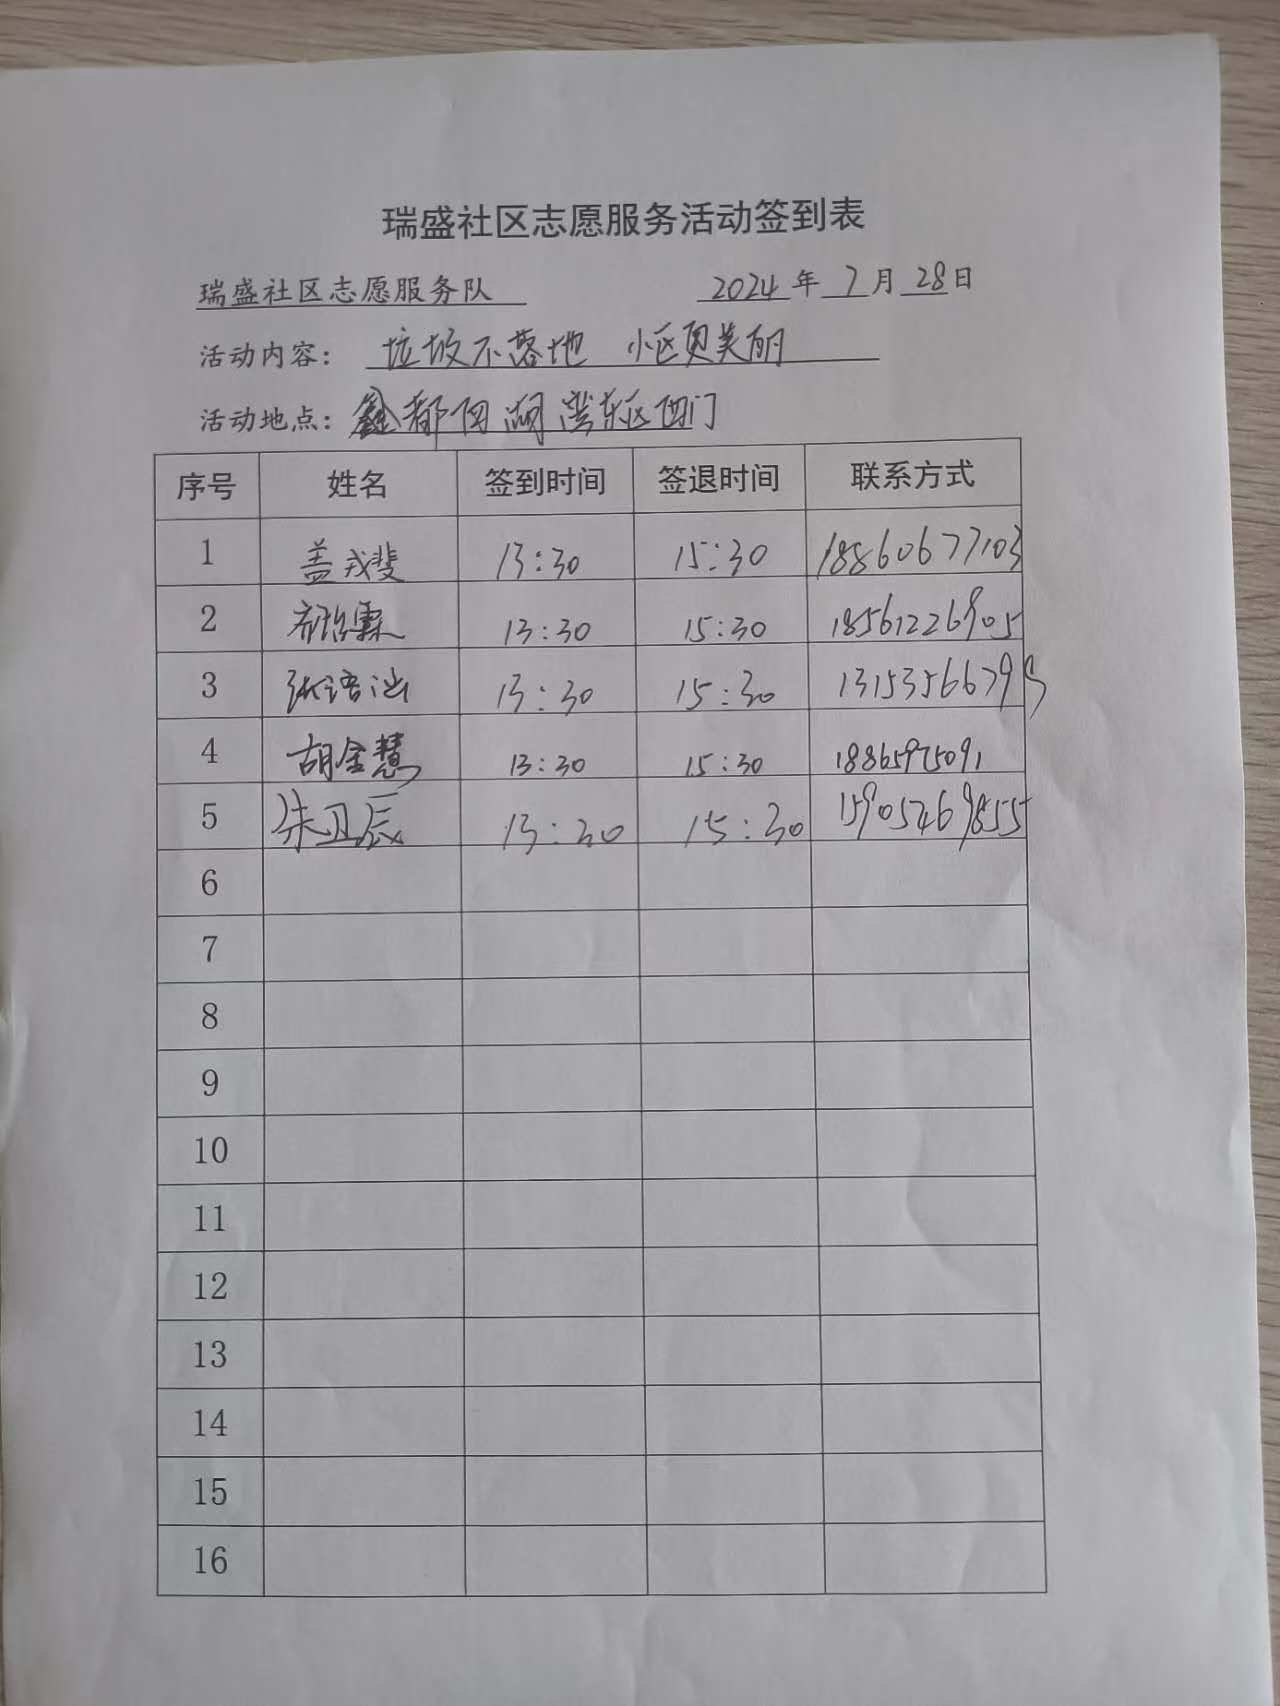 瑞盛社区志愿服务活动签到表
瑞盛社区志愿服务队 2024年7月28日
活动内容: 垃圾不落地 小区更美丽
活动地点: 鑫都西湖湾东区西门
序号 姓名 签到时间 签退时间 联系方式
1 盖戎斐 13:30 15:30 18860677103
2 13:30 15:30 18561226905
3 张语汕 13:30 15:30 13153566795
4 胡金慧 13:30 15:30 18865975091
5 朱卫辰 13:30 15:30 15905469855
6
7
8
9
10
11
12
13
14
15
16